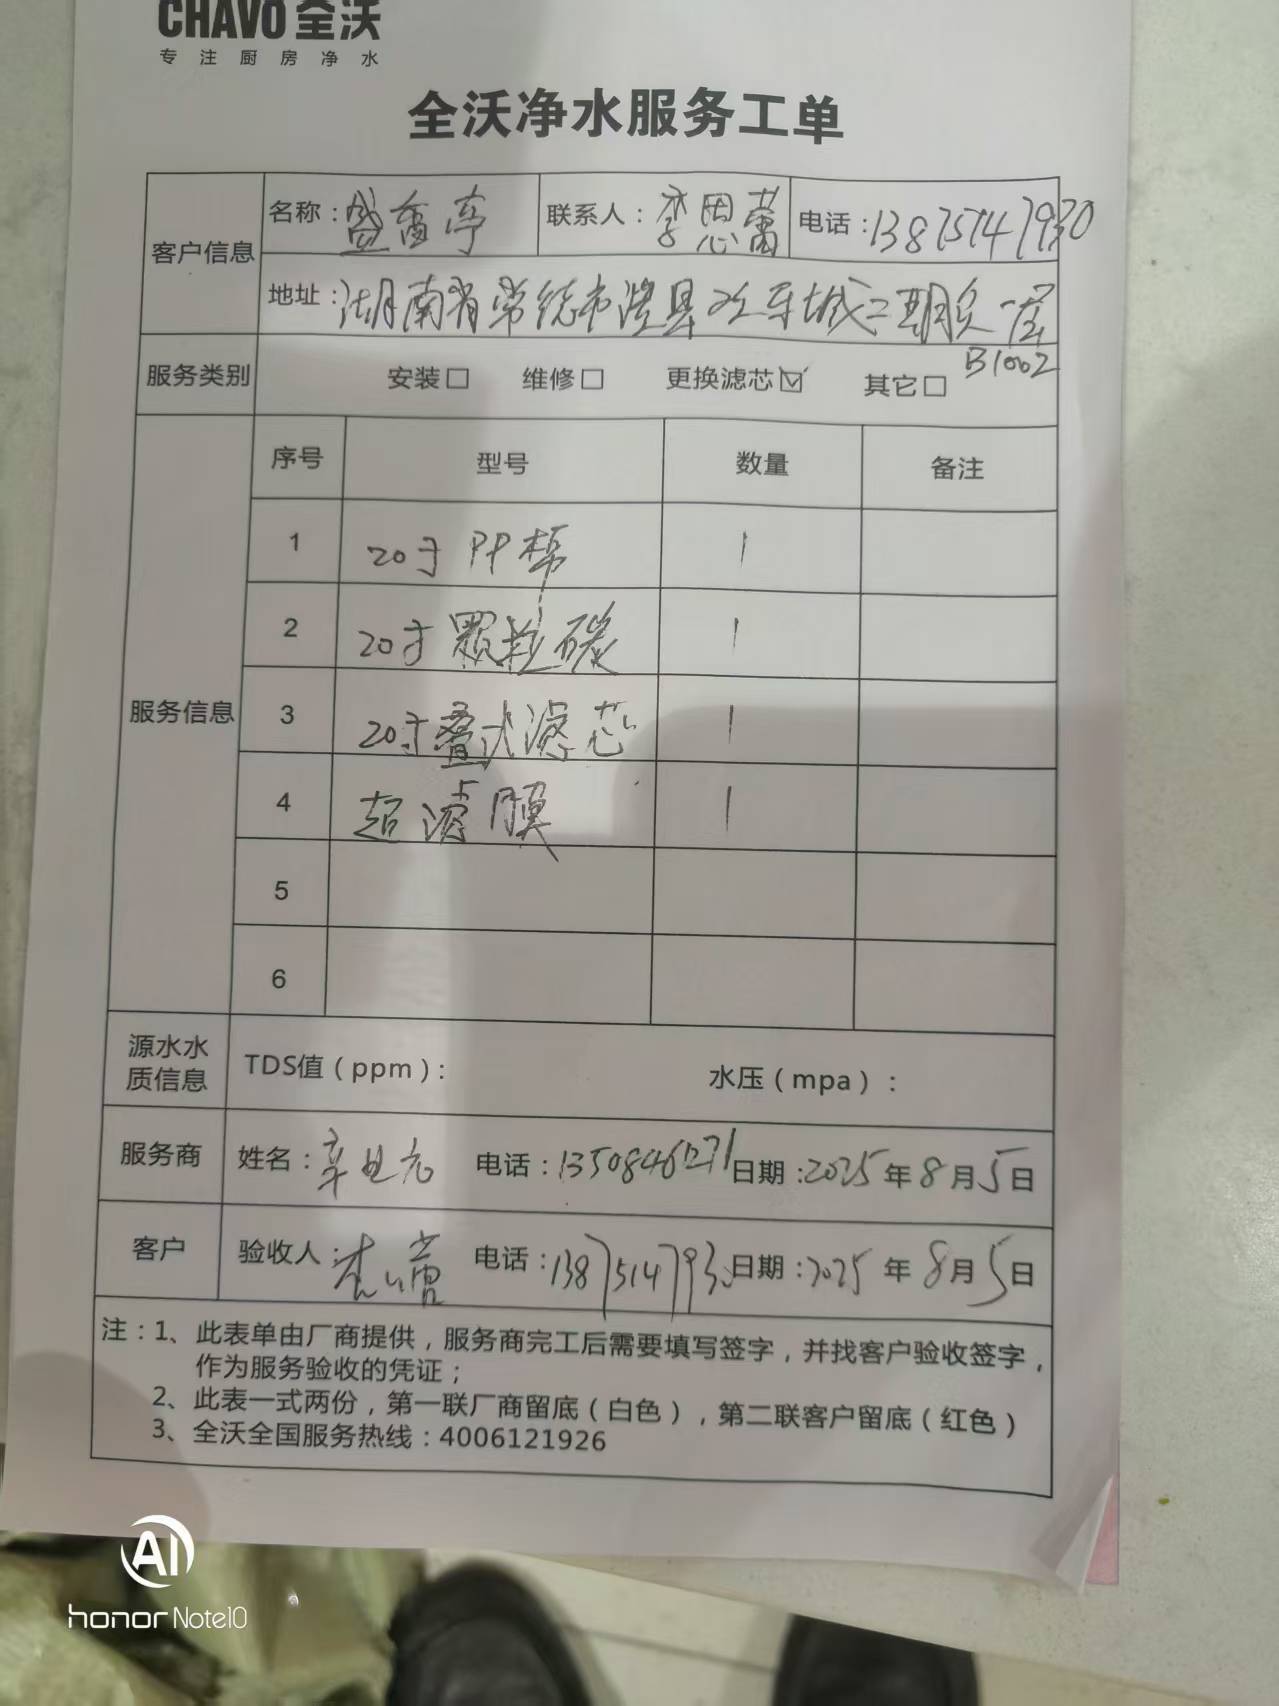 CHAVO 全沃
专注厨房净水
全沃净水服务工单
客户信息
名称：盛香亭 联系人：李思蕾 电话：13875147930
地址：湖南省常德市澧县欢乐城二期负一层
B1002
服务类别 安装□ 维修□ 更换滤芯☑ 其它□
服务信息
序号 型号 数量 备注
1 20寸PP棉 1
2 20寸颗粒碳 1
3 20寸叠式滤芯 1
4 超滤膜 1
5
6
源水水质信息 TDS值（ppm）： 水压（mpa）：
服务商 姓名：辛 电话：13508461271 日期：2025年8月5日
客户 验收人： 电话：13875147930 日期：2025年8月5日
注：1、此表单由厂商提供，服务商完工后需要填写签字，并找客户验收签字，
作为服务验收的凭证；
2、此表一式两份，第一联厂商留底（白色），第二联客户留底（红色）
3、全沃全国服务热线：4006121926
AI
honor Note10